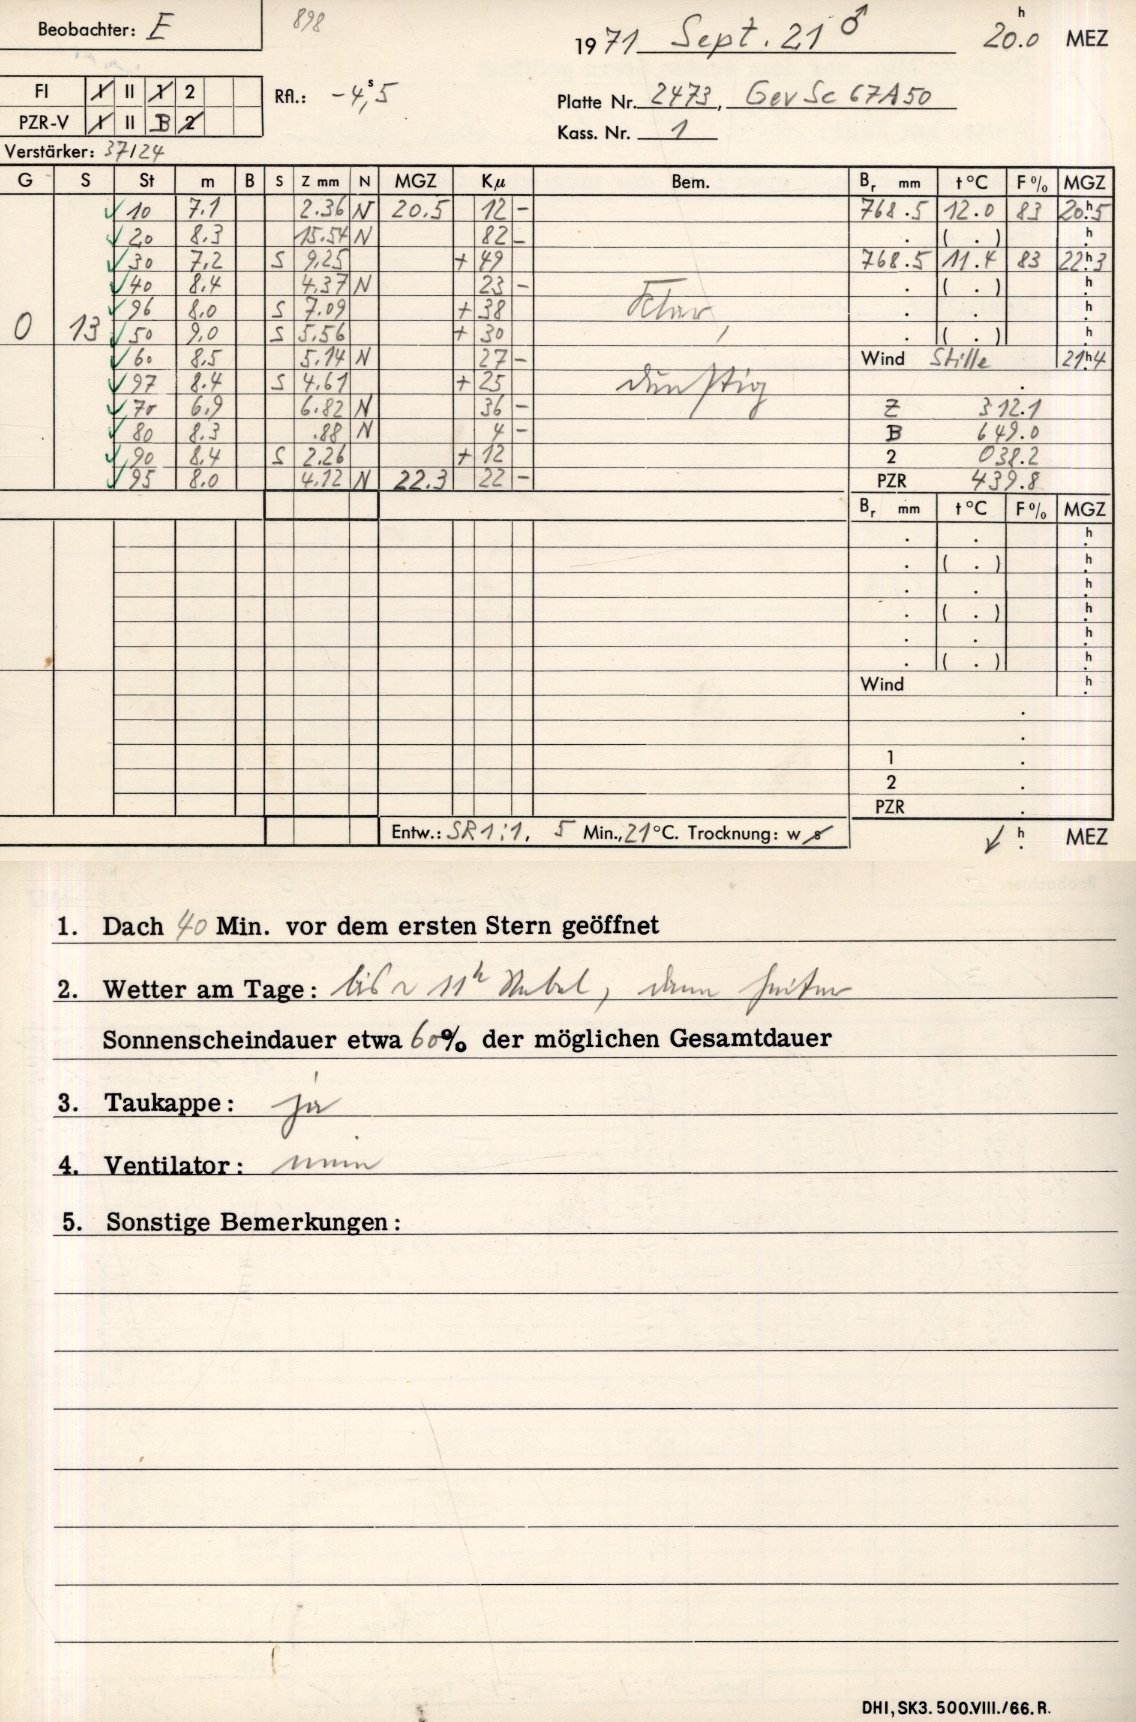 Beobachter: E
898
1971 Sept. 21 ♂ 20.0 h MEZ
FI I II 1 2
PZR-V I II B 2
Rfl.: -4,s5
Platte Nr. 2473, Gev Sc 67A50
Kass. Nr. 1
Verstärker: 37/24
G S St m B S Z mm N MGZ Kμ Bem. Br mm t °C F% MGZ
✓ 10 7.1 2.36 N 20.5 12 - 768.5 12.0 83 20h.5
✓ 20 8.3 15.54 N 82 - . ( . ) h.
✓ 30 7.2 S 9.25 + 49 768.5 11.4 83 22h.3
✓ 40 8.4 4.37 N 23 - . ( . ) h.
✓ 96 8.0 S 7.09 + 38 Klar, . . h.
0 13 ✓ 50 9.0 S 5.56 + 30 . ( . ) h.
✓ 60 8.5 5.14 N 27 - Wind Stille 21h.4
✓ 97 8.4 S 4.61 + 25 dunstig .
✓ 70 6.9 6.82 N 36 - Z 312.1
✓ 80 8.3 .88 N 4 - B 649.0
✓ 90 8.4 S 2.26 + 12 2 038.2
✓ 95 8.0 4.12 N 22.3 22 - PZR 439.8
Br mm t °C F% MGZ
. . h.
. ( . ) h.
. . h.
. ( . ) h.
. . h.
. ( . ) h.
Wind h.
.
.
1 .
2 .
PZR .
Entw.: SR 1:1, 5 Min., 21 °C. Trocknung: w s
h. MEZ
1. Dach 40 Min. vor dem ersten Stern geöffnet
2. Wetter am Tage: bis ~ 11h Nebel, dann heiter
Sonnenscheindauer etwa 60% der möglichen Gesamtdauer
3. Taukappe: ja
4. Ventilator: nein
5. Sonstige Bemerkungen:
DHI, SK3. 500.VIII./66. R.